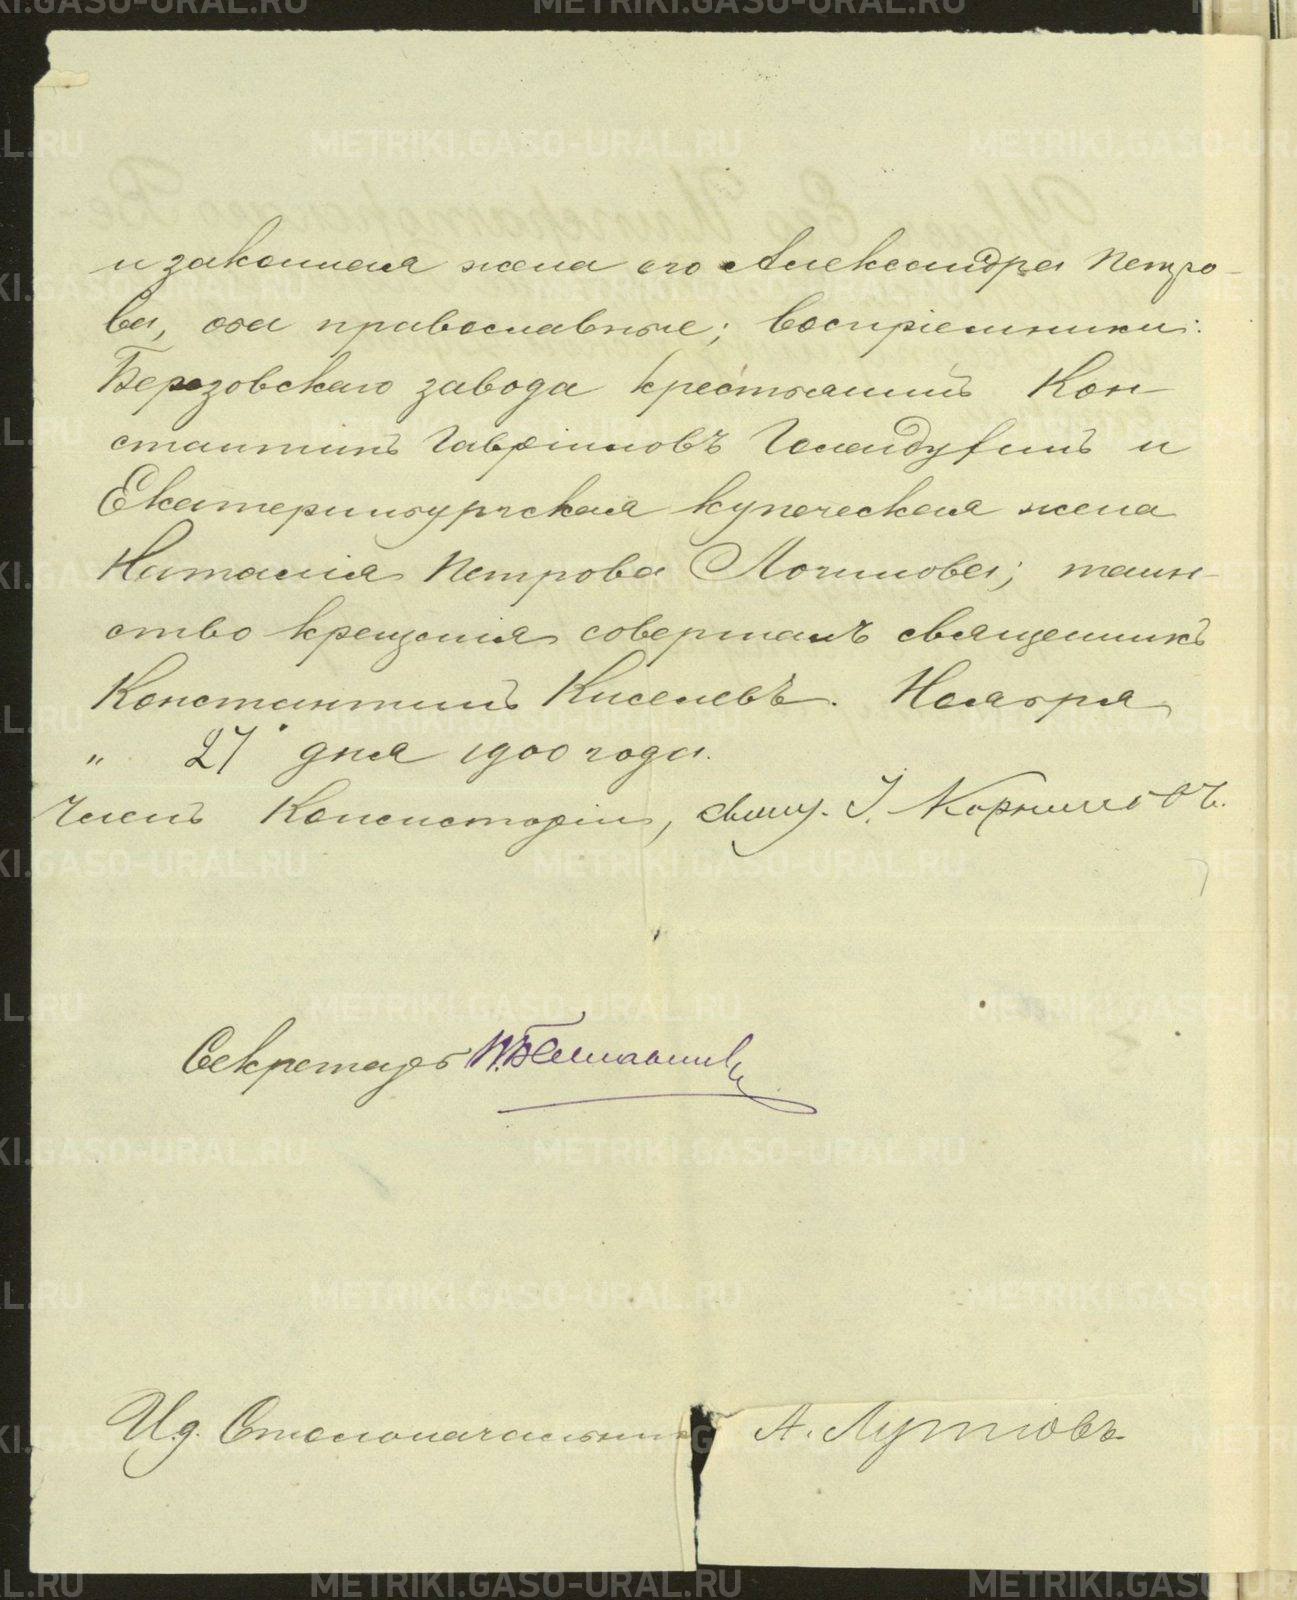 и законная жена его Александра Петро-
ва, оба православные; воспріемники:
Березовскаго завода крестьянинъ Кон-
стантинъ Гавріиловъ и
Екатеринбургская купеческая жена
Наталія Петрова Логинова; таин-
ство крещенія совершалъ священникъ
Константинъ Киселевъ. Ноября
" 27 " дня 1900 года.
Членъ Консисторіи, свящ. І. Корниловъ.
Секретарь
И. д. Столоначальника А. Лутковъ
METRIKI.GASO-URAL.RU